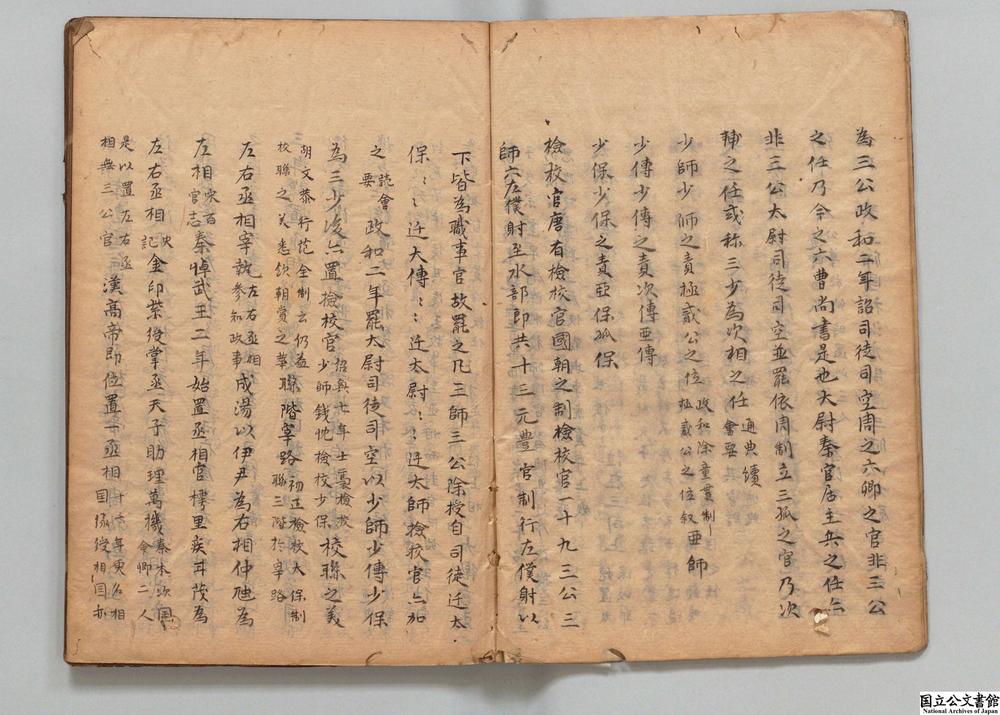 為三公政和二年詔司徒司空周之六卿之官非三公
之任乃今之六曹尚書是也大尉秦官居主兵之任亦
非三公太尉司徒司空並罷依周制立三孤之官乃次
輔之任或称三少為次相之任 通典續會要
少師少師之責極貳公之位 政和除童貫制極貳公之位叙 亜師
少傅少傅之責次傅亜傅
少保少保之責亞保孤保
檢校官唐有檢校官國朝之制檢校官一十九三公三
師六左僕射至水部郎共十三元豊官制行左僕射以
下皆為職事官故罷之凡三師三公除授自司徒迁太
保〻〻迁大傅〻〻迁太尉〻〻迁大師檢校官亦加
之 続會要 政和二年罷大尉司徒司空以少師少傅少保
為三少後亦置檢校官 紹興七年士㒟檢校少師錢忱檢校少保 校聯之義
胡文恭行范全制云仍益校聯之美悉仍朝賞之華 聯階辜路 初正檢校大保制聯三階於辜路
左右丞相宰執 左右丞相参知政事 成湯以伊尹為右相仲虺為
左相 宋百官志 秦悼武王二年始置丞相官樗里疾甘茂為
左右丞相 史記 金印紫綬掌丞天子助理萬機 秦本次国命卿二人
是以置左右丞相無三公官 漢高帝即位置一丞相 十一年更名相国孫綬相国亦
国立公文書館
National Archives of Japan